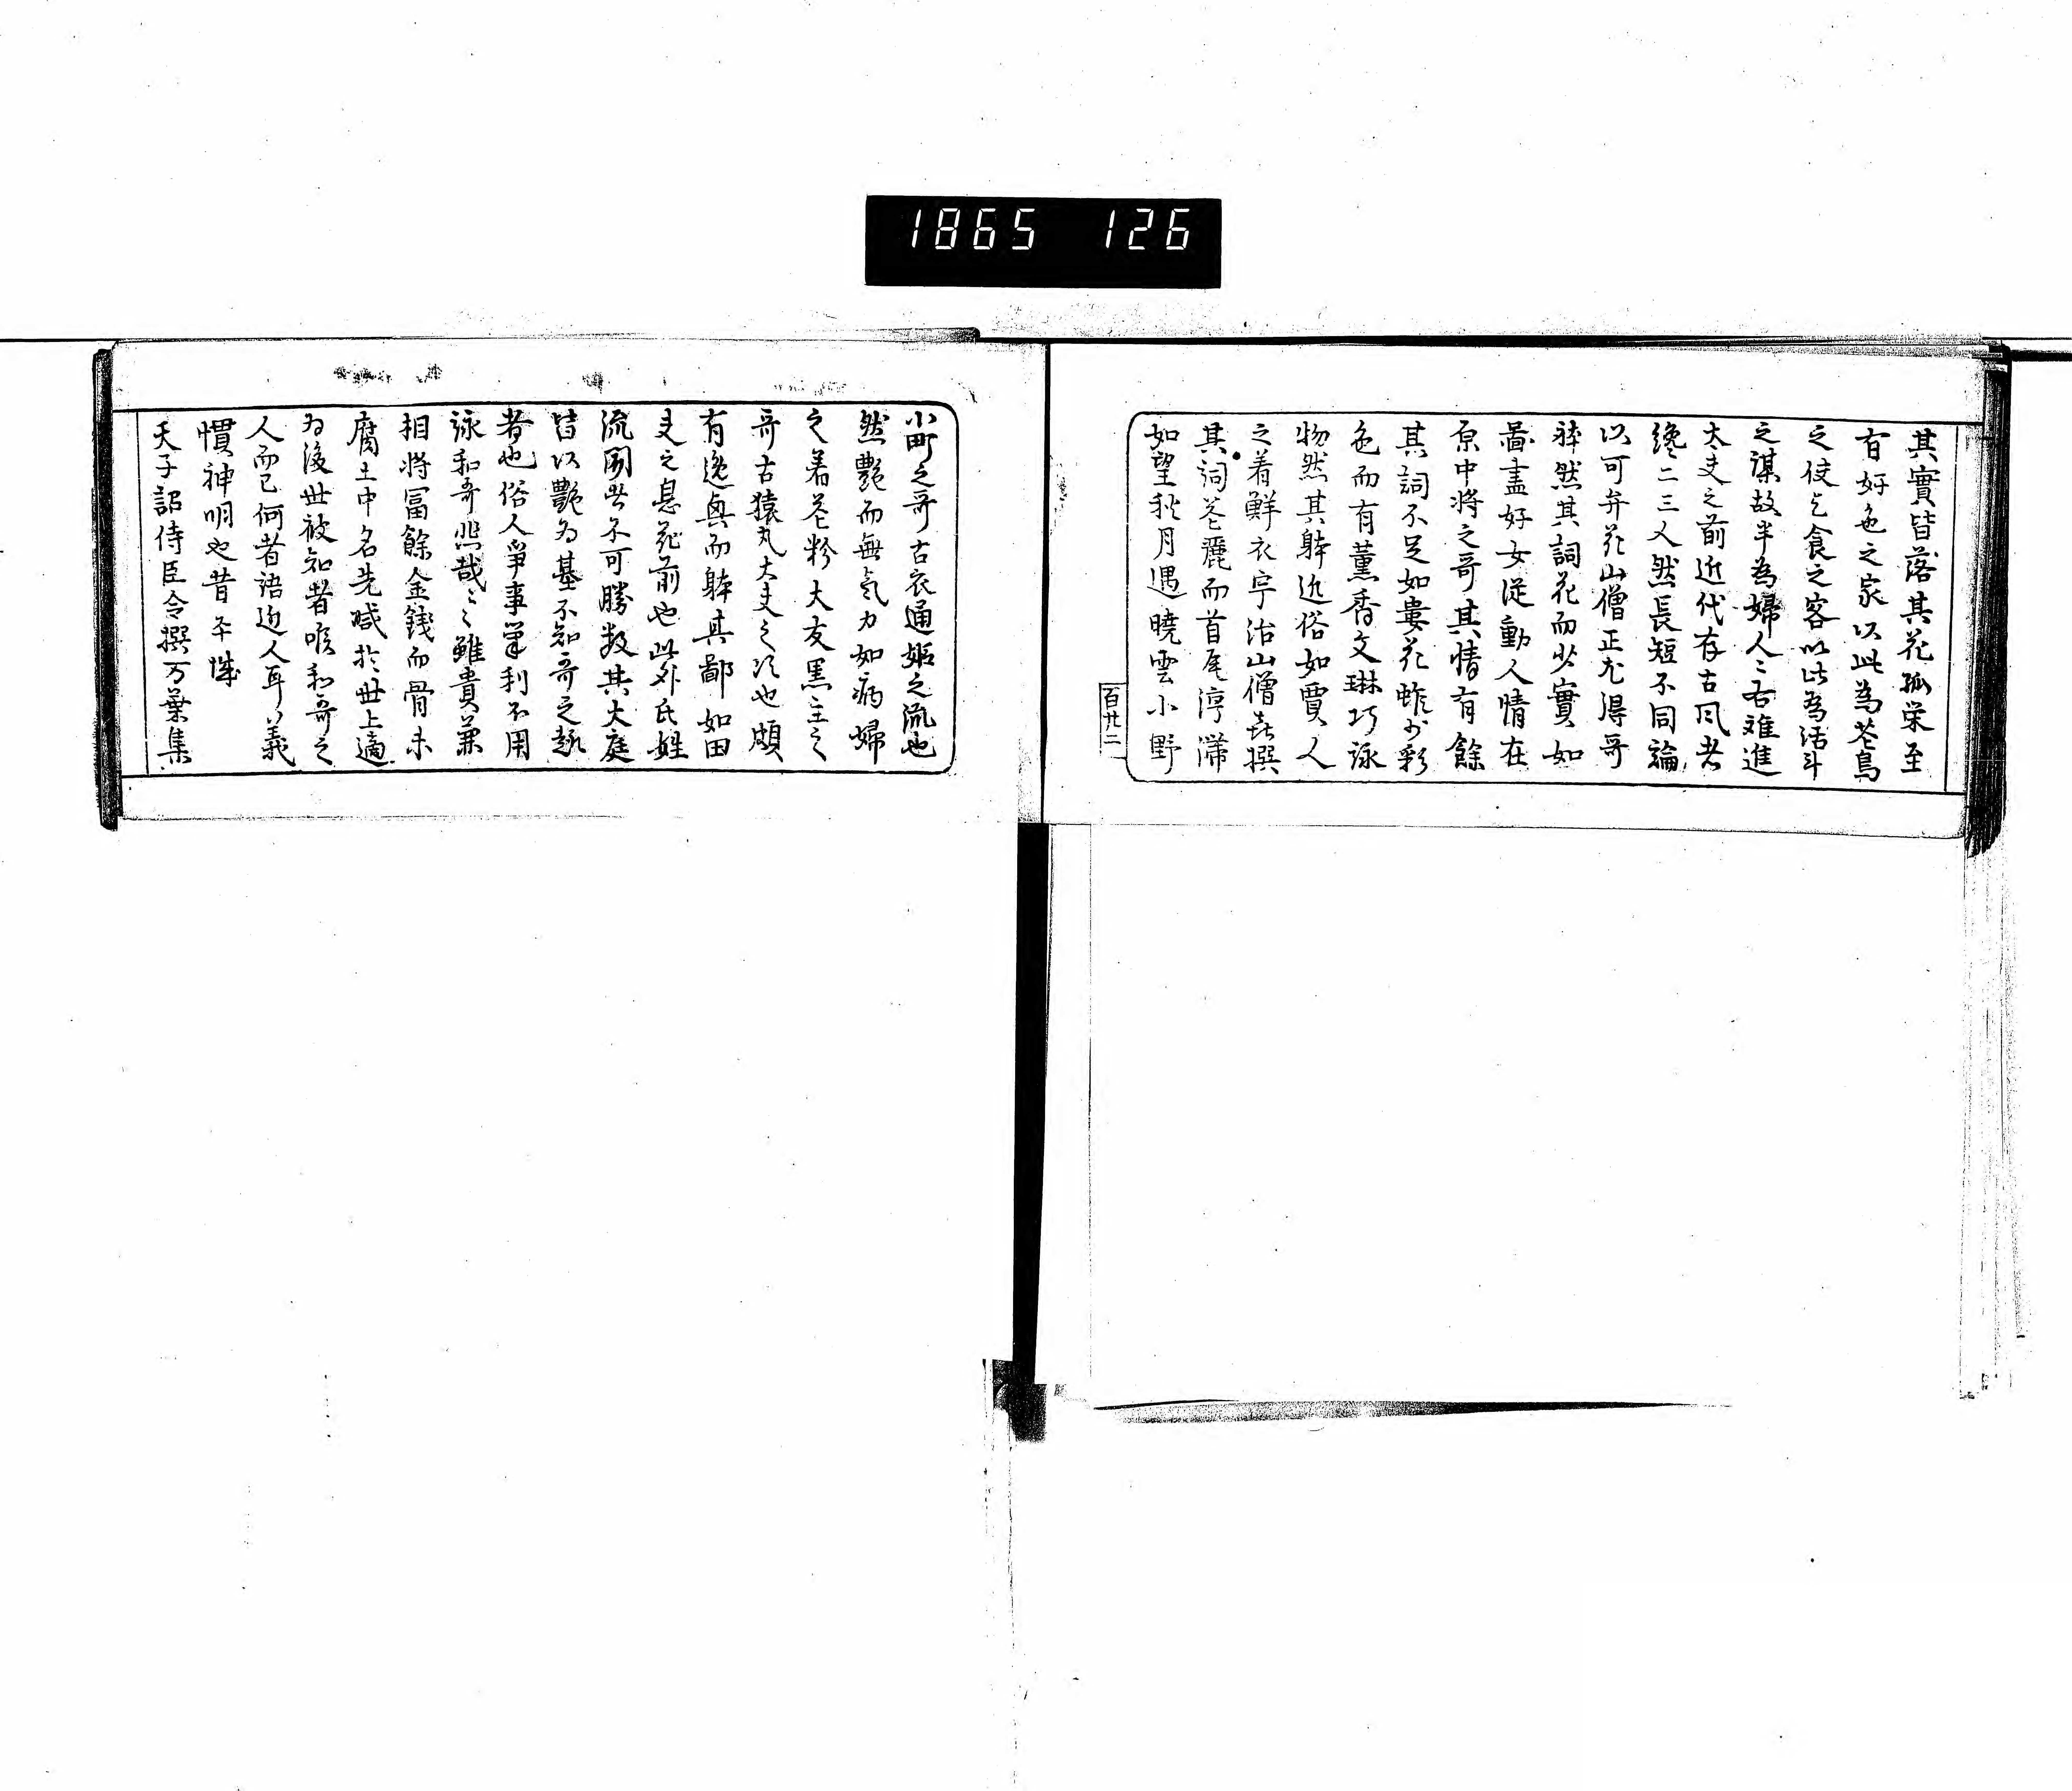 1865 126
其實皆落其花孤栄至
有好色之家以此為花鳥
之使乞食之客以此為活斗
之謀故半為婦人〻右難進
大夫之前近代存古風者
纔二三人然長短不同論
以可弁花山僧正尤得哥
躰然其詞花而少實如
圖畫好女徒動人情在
原中将之哥其情有餘
其詞不足如萎花雖少彩
色而有薫香文琳巧詠
物然其躰近俗如賈人
之着鮮衣宇治山僧喜撰
其詞花麗而首尾渟滞
如望秋月遇曉雲小野
百廿二
小町之哥古衣通姫之流也
然艶而無気力如病婦
之着花粉大友黒主之
哥古猿丸大夫之次也頗
有逸興而躰甚鄙如田
夫之息花前也此外氏姓
流聞者不可勝数其大底
皆以艶為基不知哥之趣
者也俗人爭事榮利不用
詠和哥悲哉〻〻雖貴兼
相将冨餘金銭而骨未
腐土中名先滅於世上適
為後世被知者唯和哥之
人而已何者語近人耳義
慣神明也昔平城
天子詔侍臣令撰万葉集